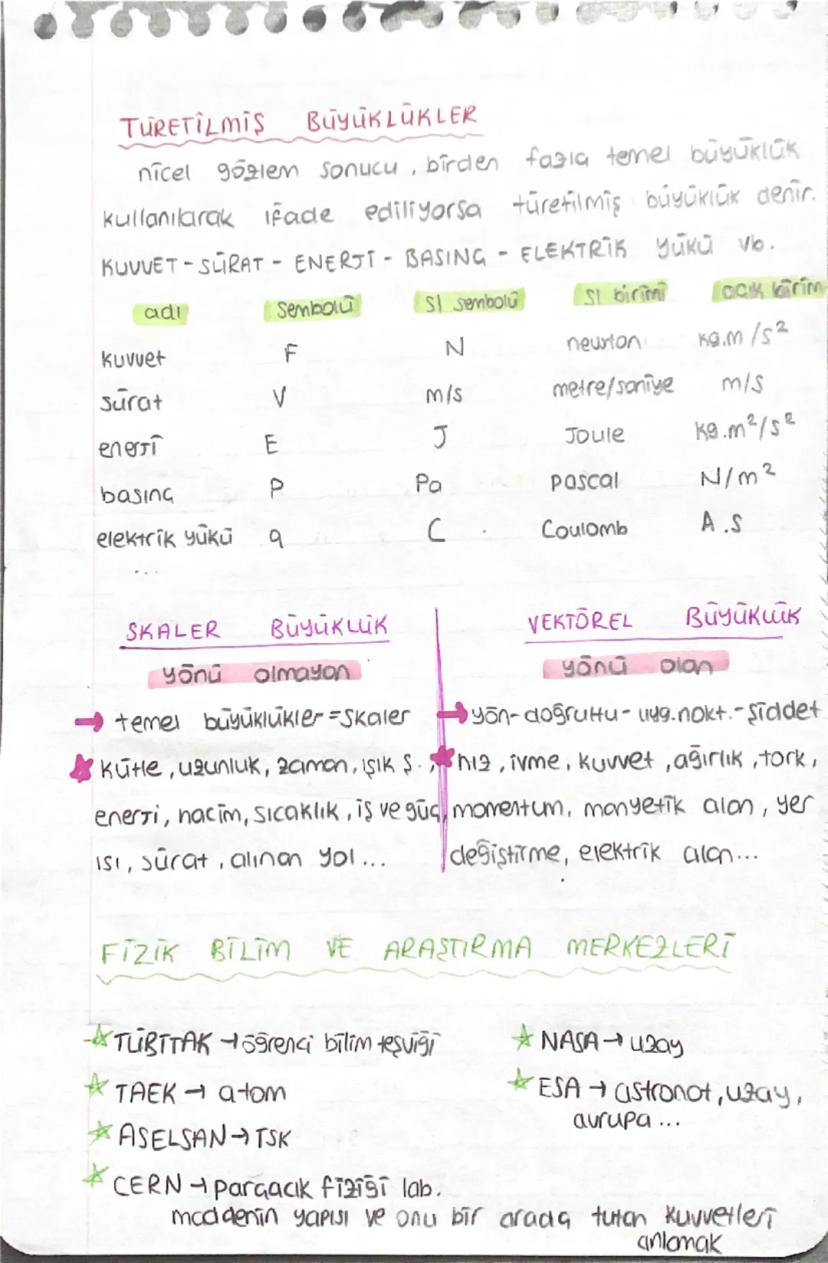 TÜRETİLMİŞ BÜYÜKLÜKLER
nicel gözlem sonucu, birden fazla temel büyüklük
kullanılarak ifade ediliyorsa türetilmiş büyüklük denir.
KUVVET - SÜRAT - ENERJİ - BASINÇ - ELEKTRİK YÜKÜ vb.
adı sembolü SI sembolü SI birimi açık birim
kuvvet F N newton kg.m/s²
sürat V m/s metre/saniye m/s
enerji E J Joule kg.m²/s²
basınç P Pa pascal N/m²
elektrik yükü q C Coulomb A.s
...
SKALER BÜYÜKLÜK
yönü olmayan
→ temel büyüklükler = skaler
★ kütle, uzunluk, zaman, ışık ş.,
enerji, hacim, sıcaklık, iş ve güç,
ısı, sürat, alınan yol...
VEKTÖREL BÜYÜKLÜK
yönü olan
→ yön - doğrultu - uyg.nokt. - şiddet
★ hız, ivme, kuvvet, ağırlık, tork,
momentum, manyetik alan, yer
değiştirme, elektrik alan...
FİZİK BİLİM VE ARAŞTIRMA MERKEZLERİ
☆ TÜBİTAK → öğrenci bilim teşviği
☆ TAEK → atom
☆ ASELSAN → TSK
☆ CERN → parçacık fiziği lab.
maddenin yapısı ve onu bir arada tutan kuvvetleri
anlamak
☆ NASA → uzay
☆ ESA → astronot, uzay,
avrupa...